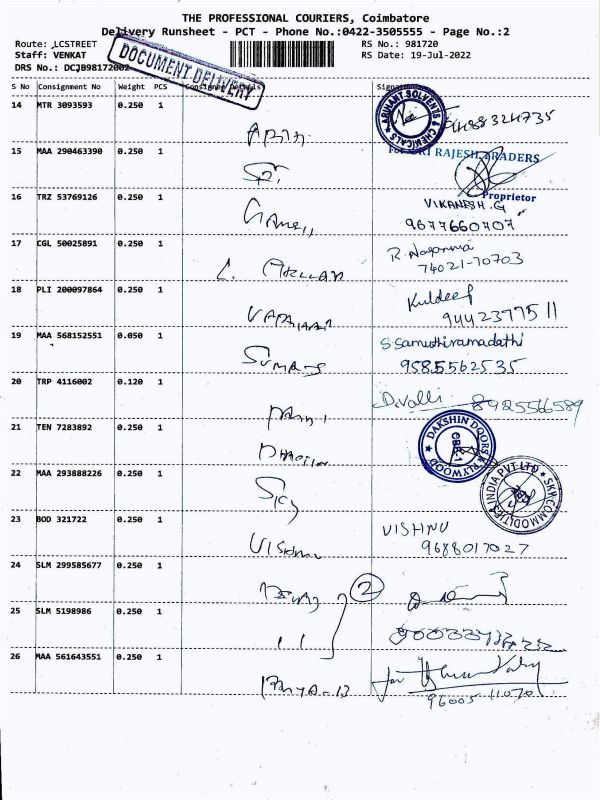 THE PROFESSIONAL COURIERS, Coimbatore
Delivery Runsheet - PCT - Phone No.:0422-3505555 - Page No.:2
Route: LCSTREET
RS No.: 981720
Staff: VENKAT
RS Date: 19-Jul-2022
DRS No.: DCJB98172002
DOCUMENT DELIVERY
S No Consignment No Weight PCS Consignee Details Signature
14 MTR 3093593 0.250 1
ARIHANT SOLVENTS & CHEMICALS
15 MAA 290463390 0.250 1 Sri
For SRI RAJESH TRADERS
Proprietor
16 TRZ 53769126 0.250 1
VIKANESH .G
9677660707
17 CGL 50025891 0.250 1
74021-70703
18 PLI 200097864 0.250 1
Kuldeep
9442377511
19 MAA 568152551 0.050 1
S.Samuthiramadathi
9585562535
20 TRP 4116002 0.120 1
D.Valli 8925566589
21 TEN 7283892 0.250 1
DAKSHIN DOORS & PLYWOOD
CBE-1
22 MAA 293888226 0.250 1
SKY COMMODITIES INDIA PVT LTD
23 BOD 321722 0.250 1 Vishnu
VISHNU
9688017027
24 SLM 299585677 0.250 1
2
25 SLM 5198986 0.250 1 11
26 MAA 561643551 0.250 1
96005 11070